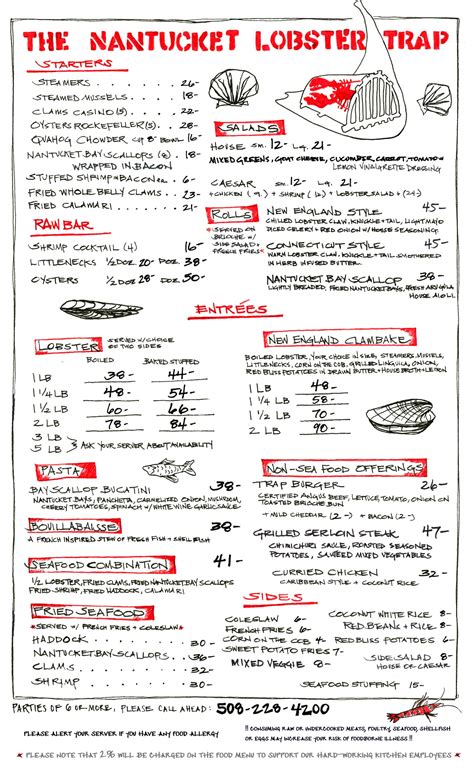 THE NANTUCKET LOBSTER TRAP
STARTERS
STEAMERS 26-
STEAMED MUSSELS 18-
CLAMS CASINO (5) 22-
OYSTERS ROCKEFELLER (5) 28-
QUAHOG CHOWDER CUP 8- BOWL 16-
NANTUCKET BAY SCALLOPS (8) 18-
WRAPPED IN BACON
STUFFED SHRIMP + BACON ea. 6-
FRIED WHOLE BELLY CLAMS 23-
FRIED CALAMARI 21-
RAW BAR
SHRIMP COCKTAIL (4) 16-
LITTLENECKS 1/2 DOZ 20- DOZ 38-
OYSTERS 1/2 DOZ 28- DOZ 50-
SALADS
HOUSE SM. 12- LG. 21-
MIXED GREENS, GOAT CHEESE, CUCUMBER, CARROT, TOMATO +
LEMON VINAIGRETTE DRESSING
CAESAR SM. 12- LG. 21-
+ CHICKEN (9.) + SHRIMP (16) + LOBSTER SALAD + (24)
ROLLS
* SERVED ON
BRIOCHE W/
SIDE SALAD +
FRENCH FRIES *
NEW ENGLAND STYLE 45-
CHILLED LOBSTER CLAW, KNUCKLE + TAIL, LIGHT MAYO
DICED CELERY + RED ONION W/ HOUSE SEASONING
CONNECTICUT STYLE 45-
WARM LOBSTER CLAW, KNUCKLE + TAIL SMOTHERED
IN HERB INFUSED BUTTER
NANTUCKET BAY SCALLOP 38-
LIGHTLY BREADED, FRIED NANTUCKET BAYS, FRESH ARUGULA
HOUSE AIOLI
ENTRÉES
LOBSTER SERVED W/ CHOICE
OF TWO SIDES
BOILED BAKED STUFFED
1 LB 38- 44-
1 1/4 LB 48- 54-
1 1/2 LB 60- 66-
2 LB 78- 84-
3 LB
5 LB ASK YOUR SERVER ABOUT AVAILABILITY
NEW ENGLAND CLAMBAKE
BOILED LOBSTER, YOUR CHOICE IN SIZE, STEAMERS, MUSSELS,
LITTLENECKS, CORN ON THE COB, GRILLED LINGUICA, ONION,
RED BLISS POTATOES IN DRAWN BUTTER + HOUSE BROTH + LEMON
1 LB 48-
1 1/4 LB 58-
1 1/2 LB 70-
2 LB 90-
PASTA
BAY SCALLOP BUCATINI 38-
NANTUCKET BAYS, PANCHETTA, CARMELIZED ONION, MUSHROOM,
CHERRY TOMATOES, SPINACH W/ WHITE WINE GARLIC SAUCE
BOUILLABAISSE 38-
A FRENCH INSPIRED STEW OF FRESH FISH + SHELLFISH
SEAFOOD COMBINATION 41-
1/2 LOBSTER, FRIED CLAMS, FRIED NANTUCKET BAY SCALLOPS
FRIED SHRIMP, FRIED HADDOCK, CALAMARI
FRIED SEAFOOD
* SERVED W/ FRENCH FRIES + COLESLAW *
HADDOCK 30-
NANTUCKET BAY SCALLOPS 36-
CLAMS 32-
SHRIMP 30-
NON-SEAFOOD OFFERINGS
TRAP BURGER 26-
CERTIFIED ANGUS BEEF, LETTUCE, TOMATO, ONION ON
TOASTED BRIOCHE BUN
+ MILD CHEDDAR (2-) + BACON (2-)
GRILLED SERLOIN STEAK 47-
CHIMICHURI SAUCE, ROASTED SEASONED
POTATOES, SAUTEED MIXED VEGETABLES
CURRIED CHICKEN 32-
CARIBBEAN STYLE + COCONUT RICE
SIDES
COLESLAW 6-
FRENCH FRIES 6-
CORN ON THE COB 4-
SWEET POTATO FRIES 7-
MIXED VEGGIE 8-
COCONUT WHITE RICE 8-
RED BEANS + RICE 8-
RED BLISS POTATOES 6-
SIDE SALAD 8-
HOUSE OR CAESAR
SEAFOOD STUFFING 15-
PARTIES OF 6 OR MORE, PLEASE CALL AHEAD: 508-228-4200
PLEASE ALERT YOUR SERVER IF YOU HAVE ANY FOOD ALLERGY
!! CONSUMING RAW OR UNDERCOOKED MEATS, POULTRY, SEAFOOD, SHELLFISH
OR EGGS MAY INCREASE YOUR RISK OF FOODBORNE ILLNESS !!
* PLEASE NOTE THAT 2% WILL BE CHARGED ON THE FOOD MENU TO SUPPORT OUR HARD-WORKING KITCHEN EMPLOYEES *